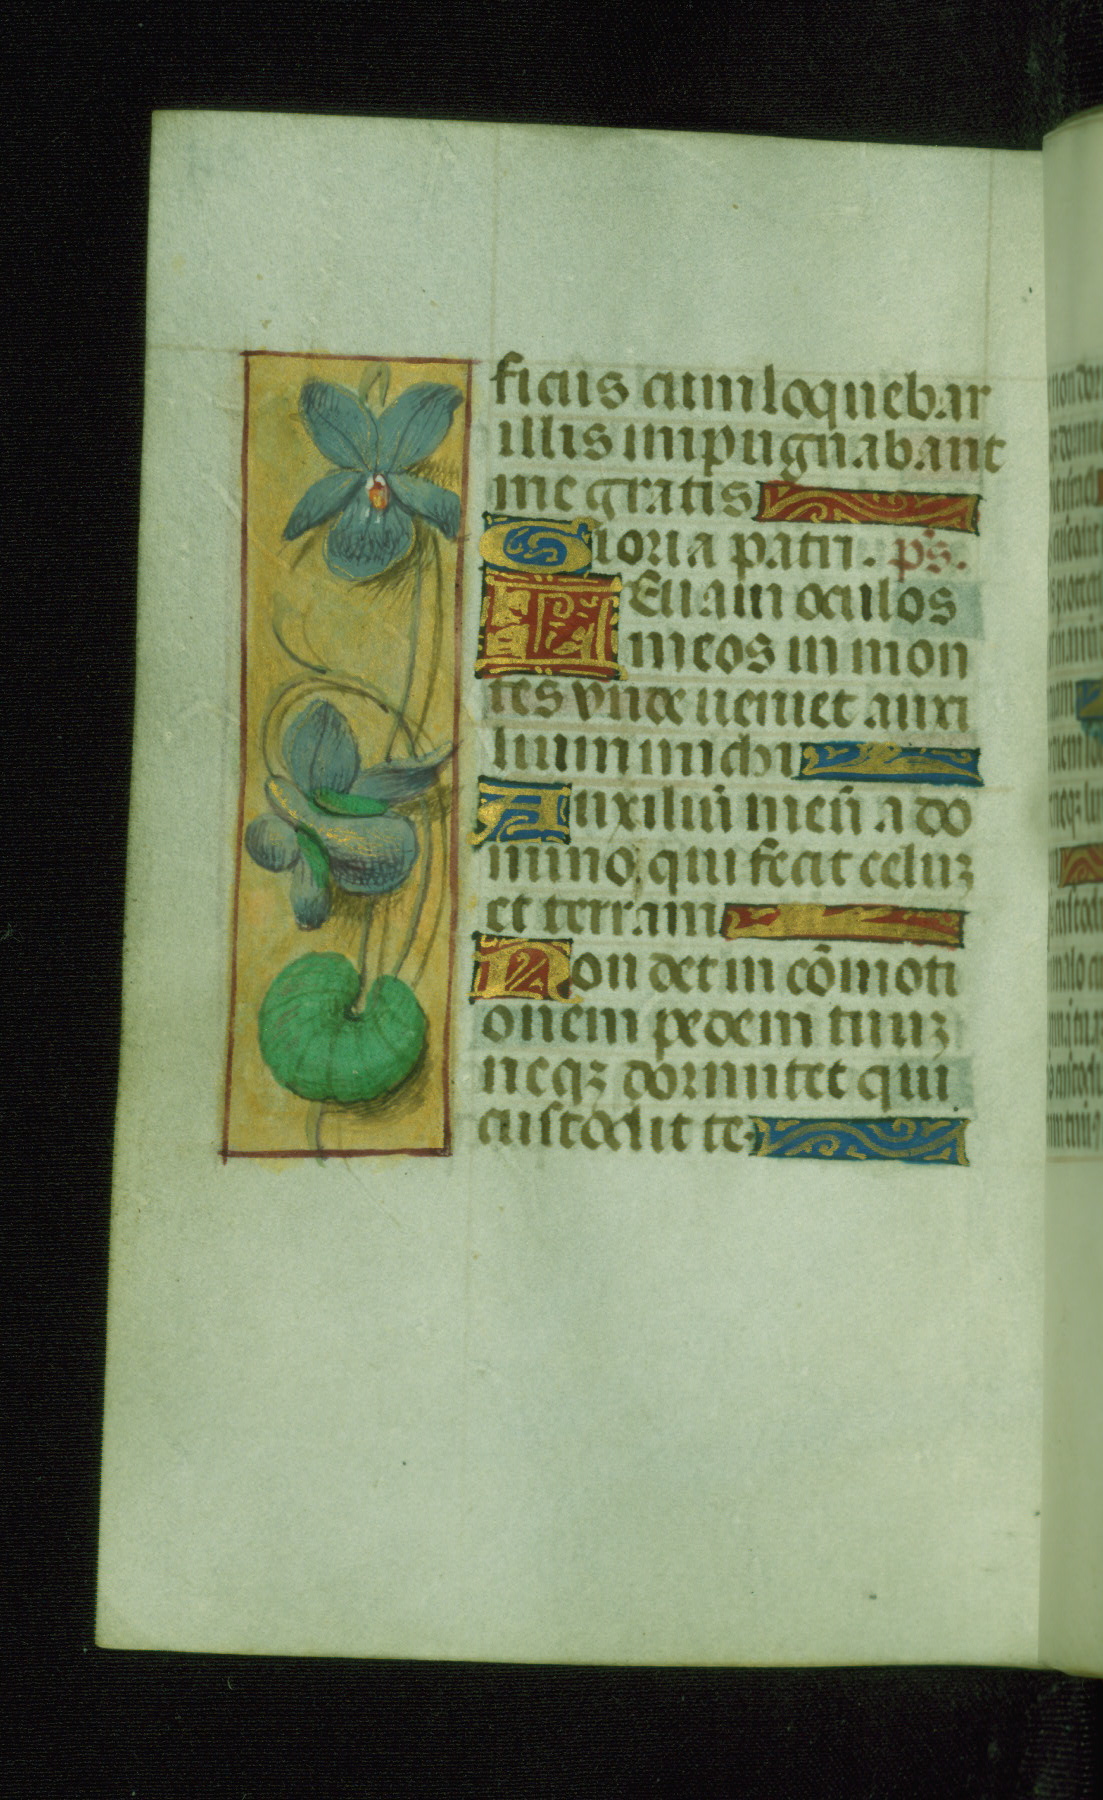 ficus cum loquebar
illis impugnabant
me gratis
Gloria patri. ps.
LEuaui oculos
meos in mon
tes vnde ueniet auxi
lium michi
Auxiliū meū a do
mino qui fecit celuꝫ
et terram
Non det in cōmoti
onem pedem tuuꝫ
neqꝫ dormitet qui
custodit te